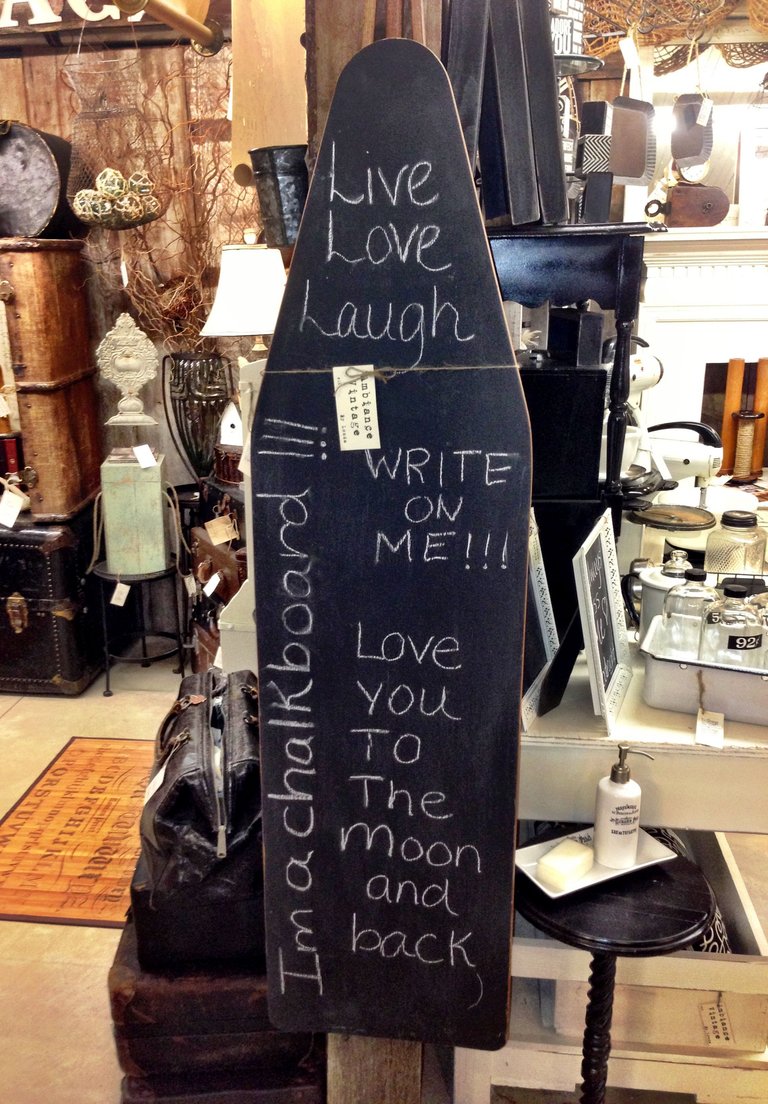 Live
Love
Laugh
ambiance
vintage
WRITE
ON
ME!!!
Im a chalkboard !!!!
Love
You
To
The
moon
and
back
92